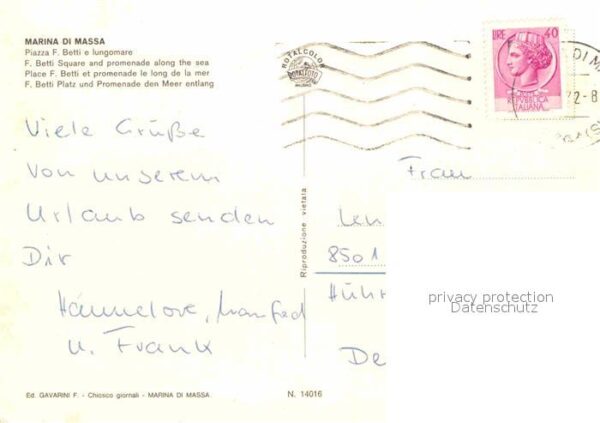 MARINA DI MASSA
Piazza F. Betti e lungomare
F. Betti Square and promenade along the sea
Place F. Betti et promenade le long de la mer
F. Betti Platz und Promenade den Meer entlang
ROTALCOLOR
ROTALFOTO
MILANO
LIRE 40
REPUBBLICA
ITALIANA
DI M
Viele Grüße
von unserem
Urlaub senden
Dir
Hannelore, Manfred
u. Frank
Riproduzione vietata
Frau
8501
De
privacy protection
Datenschutz
Ed. GAVARINI F. - Chiosco giornali - MARINA DI MASSA
N. 14016